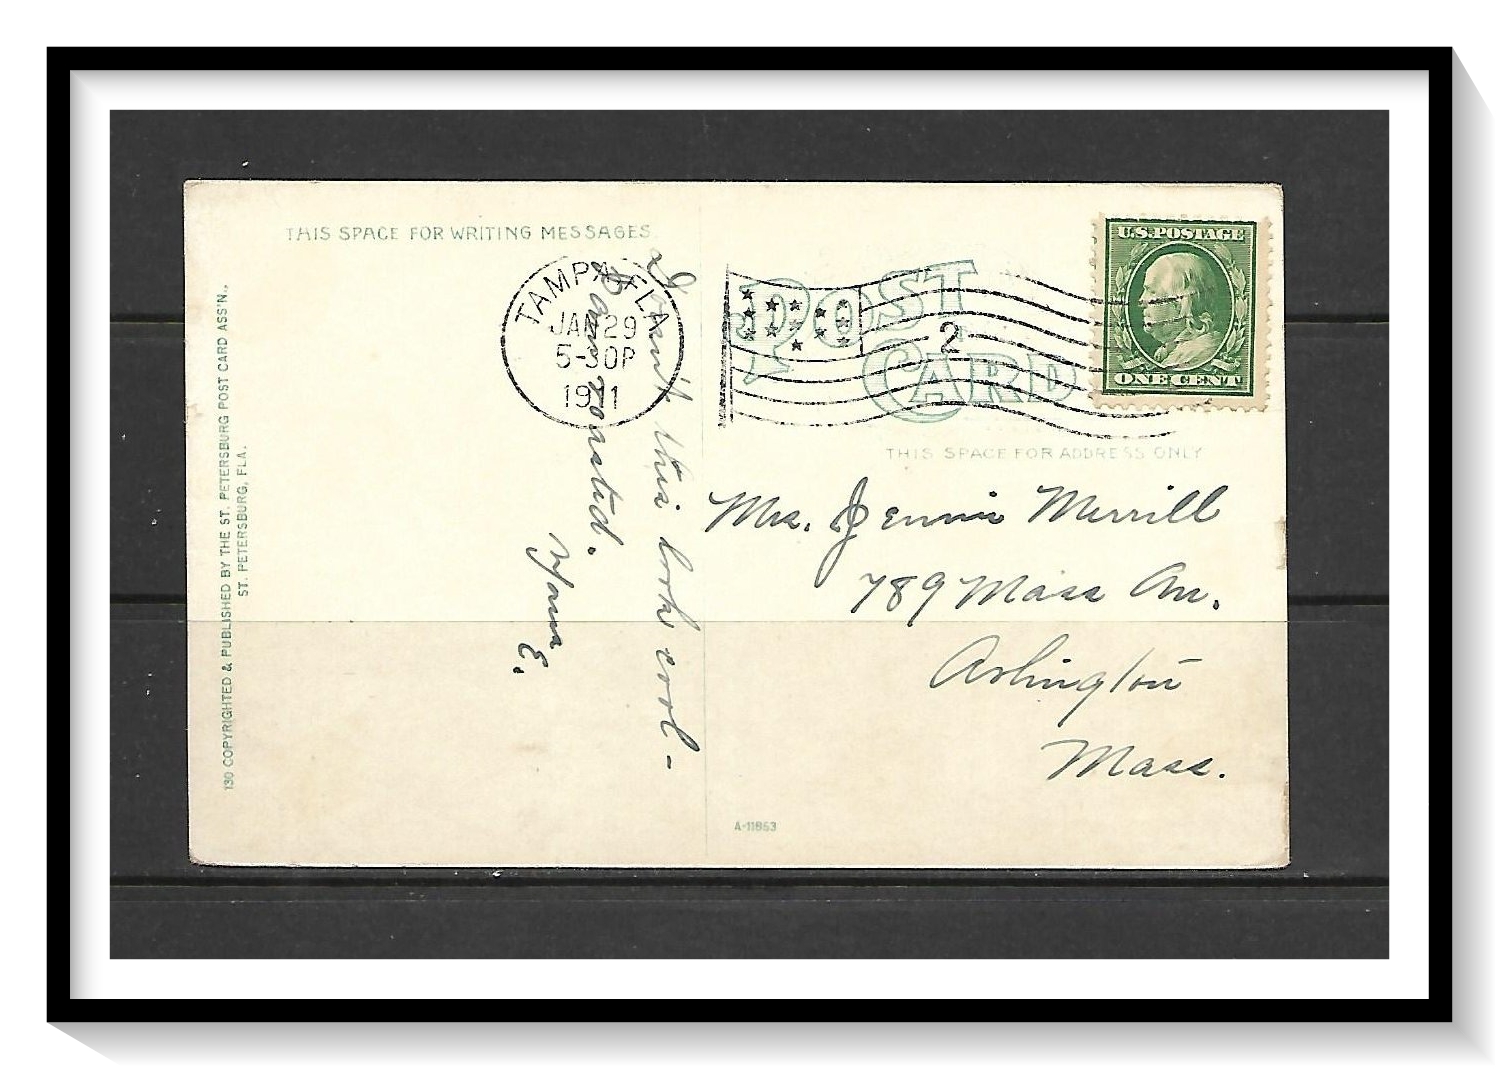 THIS SPACE FOR WRITING MESSAGES.
130 COPYRIGHTED & PUBLISHED BY THE ST. PETERSBURG POST CARD ASS'N.,
ST. PETERSBURG, FLA.
TAMPA, FLA.
JAN 29
5-30P
1911
Doesn't this look cool -
I am roasted.
Yours E.
POST
CARD
2
U.S. POSTAGE
ONE CENT
THIS SPACE FOR ADDRESS ONLY
Mrs. Jennie Merrill
789 Mass Av.
Arlington
Mass.
A-11853